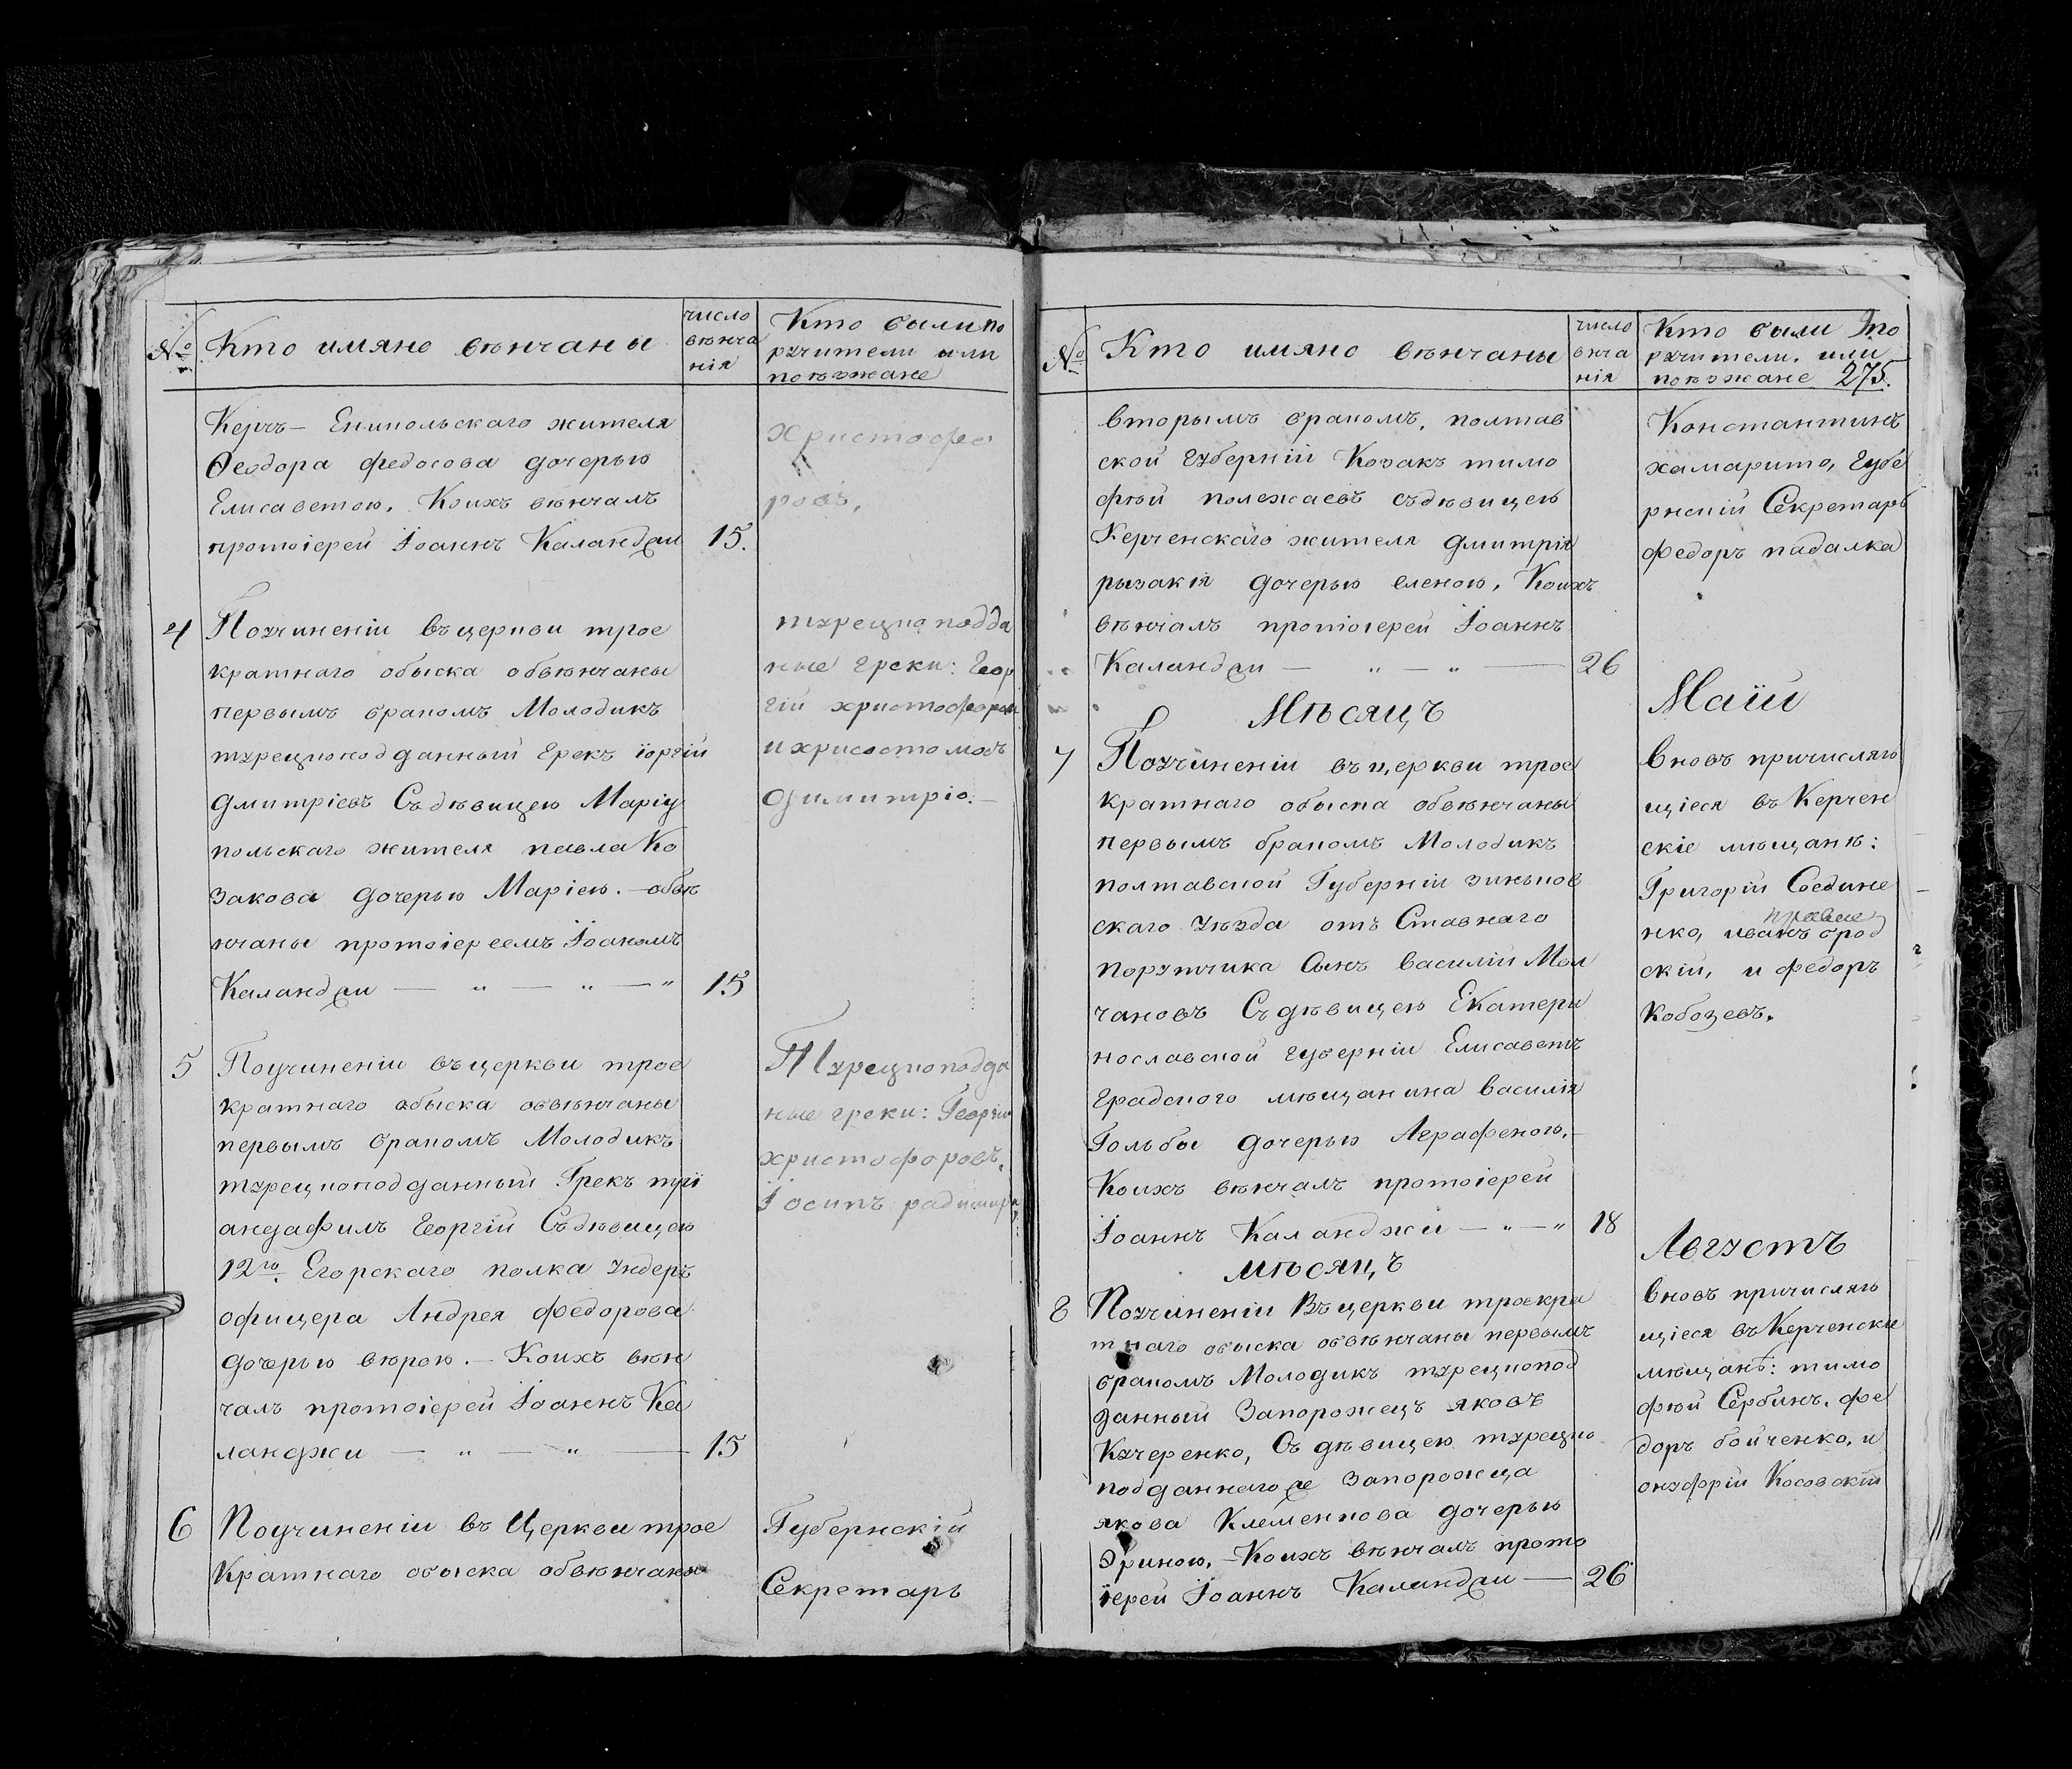 №
Кто имяно вѣнчаны
число
вѣнча
нія
Кто были по
ручители или
поѣзжане
Керчь- Еникольскаго жителя
Ѳеодора федосова дочерью
Елисаветою, Коихъ вѣнчалъ
протоіерей Іоаннъ Каланджи 15.
христофо
ровъ,
4
Поучиненіи въ церкви трое
кратнаго обыска обвѣнчаны
первымъ бракомъ Молодикъ
турецкоподданный Грекъ іоргій
дмитріевъ Съдѣвицею Маріу
польскаго жителя павла Ко
закова дочерью Маріею. - обвѣ
нчаны протоіереемъ Іоаномъ
Каланджи — „ — „ — „ 15
турецкоподда
ные греки: Геор
гій христофоров
и хрисостомосъ
димитріо.-
5
Поучиненіи въ церкви трое
кратнаго обыска обвѣнчаны
первымъ бракомъ Молодикъ
турецкоподданный Грекъ трі
андафилъ Георгій Съдѣвицею
12го Егорскаго полка Ундеръ
офицера Андрея федорова
дочерью вѣрою. - Коихъ вѣн
чалъ протоіерей Іоаннъ Ка
ланджи — „ — „ — 15
Турецкоподда
ные греки: Георгій
христофоровъ,
Іосипъ
6
Поучиненіи въ Церкви трое
кратнаго обыска обвѣнчаны
Губернскій
Секретарь
№
Кто имяно вѣнчаны
число
внча
нія
Кто были По
ручители, или
поѣзжане 275.
вторымъ бракомъ, полтав
ской губерніи Козакъ тимо
фѣй полежаевъ съдѣвицею
Керченскаго жителя дмитрія
рызакія дочерью еленою, Коихъ
вѣнчалъ протоіерей Іоаннъ
Каланджи — „ — „ — 26
Константинъ
хамарито, губе
рнскій Секретарь
федоръ падалка
Мѣсяцъ Маїй
7
Поучиненіи въ церкви трое
кратнаго обыска обвѣнчаны
первымъ бракомъ Молодикъ
полтавской Губерніи зиньков
скаго Уѣзда отъ Ставнаго
порутчика Сынъ василій Мол
чановъ Съдѣвицею Екатери
нославской губерніи Елисавет
градского мѣщанина василія
Гольбы дочерью Аграфеною.-
Коихъ вѣнчалъ протоіерей
Іоаннъ Каланджи — „ — „ 18
вновъ причисляю
щіеся въ Керчен
скіе мѣщанѣ:
Григорій Соедине
нко, иванъ брод
скій, и федоръ
Кобозевъ.
мѣсяцъ Августъ
8
Поучиненіи Въ церкви троекра
тнаго обыска обвѣнчаны первымъ
бракомъ Молодикъ турецкопод
данный Запорожецъ яковъ
Кучеренко, Съ дѣвицею турецко
подданнаго же Запорожца
якова Клеменкова дочерью
Ориною, - Коихъ вѣнчалъ прото
іерей Іоаннъ Каланджи — 26
вновъ причисляю
щіеся въ Керченскіе
мѣщанѣ: тимо
фѣй Сербинъ, фе
доръ бойченко, и
онуфрій Косовскій